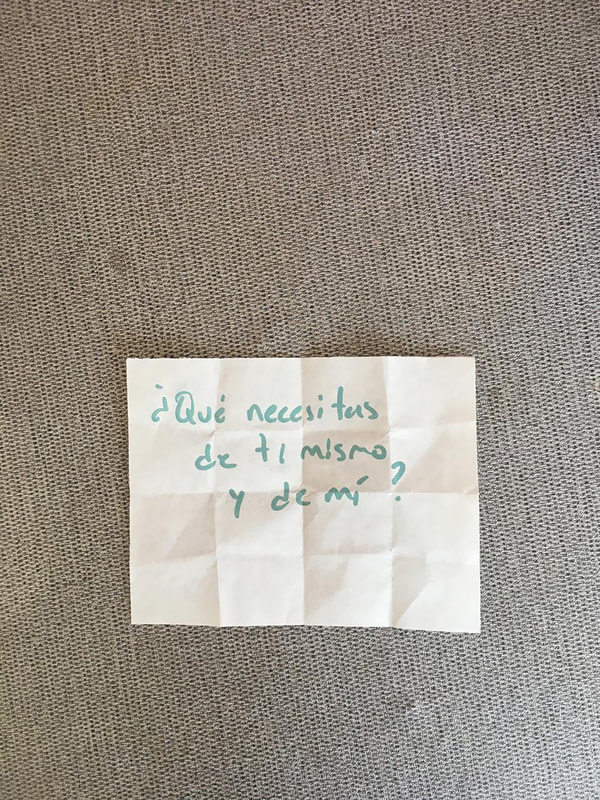 ¿Qué necesitas
de ti mismo
y de mí?